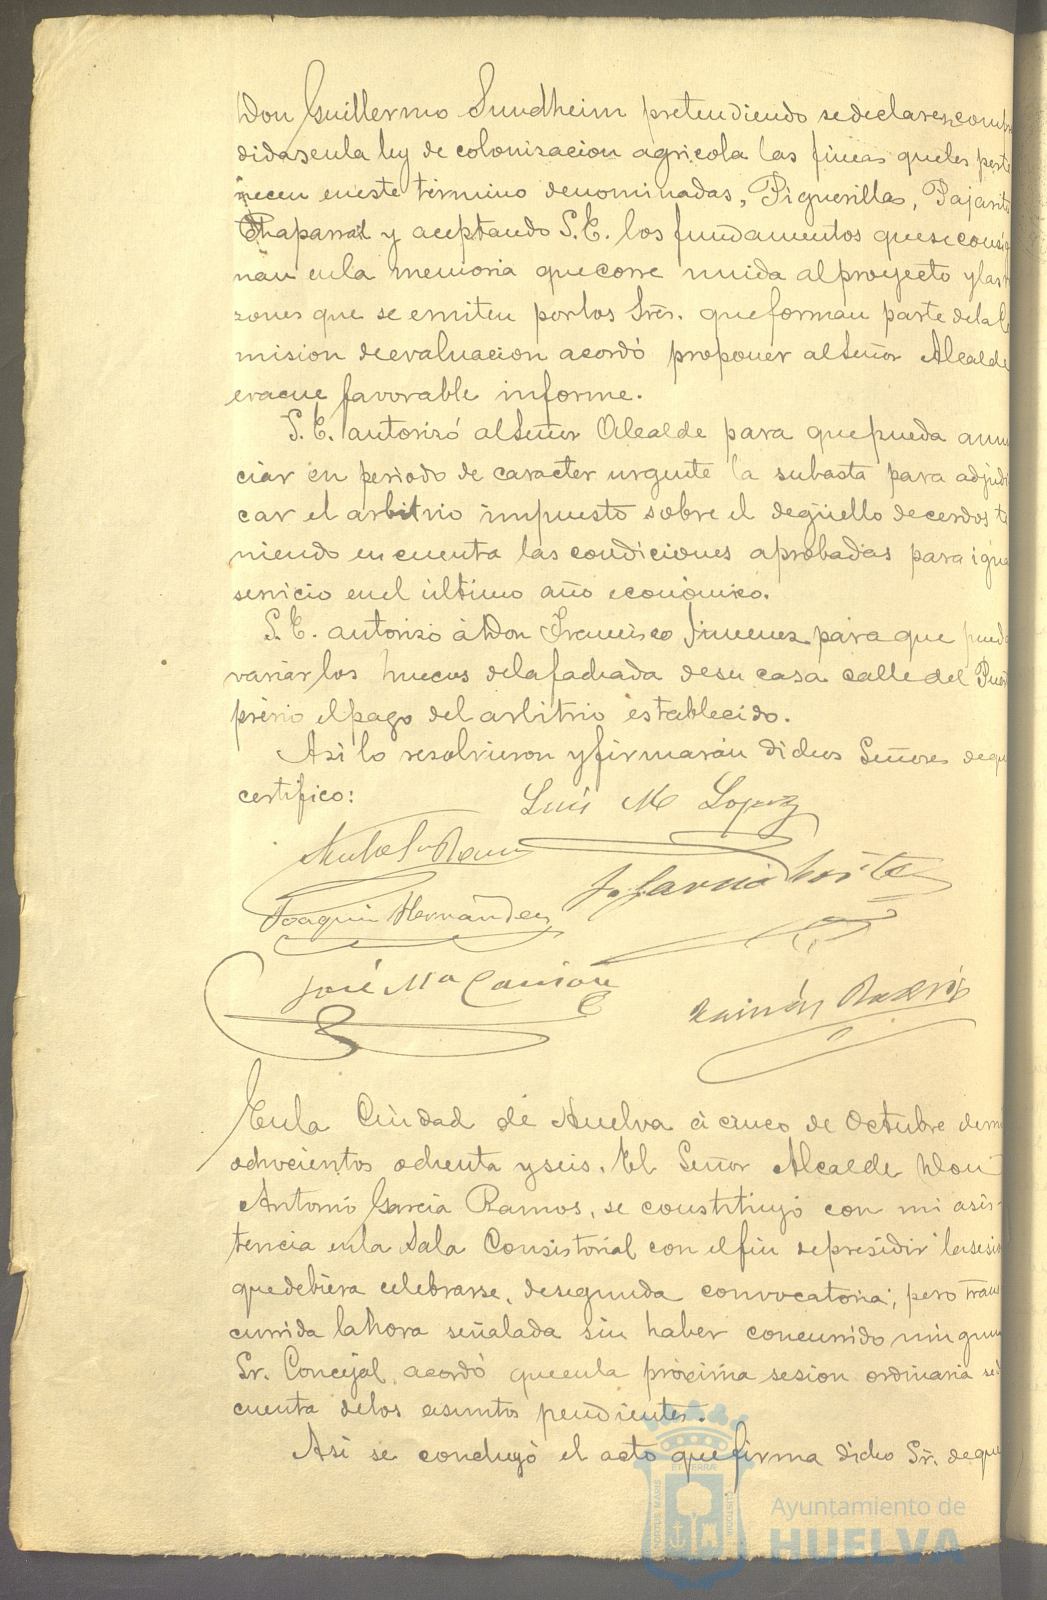 Don Guillermo Sundheim pretendiendo se declaren com
didas en la ley de colonisacion agricola las fincas que les perte
necen en este término denominadas, Piguerillas, Pajarito
Chaparral y aceptando S.E. los fundamentos que se consig
nan en la memoria que corre unida al proyecto y las ra
zones que se emiten por los Sres. que forman parte de la Co
mision de evaluacion acordó proponer al Señor Alcalde
evacue favorable informe.
S.E. autorizó al Señor Alcalde para que pueda anun
ciar en periodo de caracter urgente la subasta para adjudi
car el arbitrio impuesto sobre el degüello de cerdos te
niendo en cuenta las condiciones aprobadas para igua
servicio en el último año económico.
S.E. autorizó á Don Francisco Jimenez para que pueda
variar los huecos de la fachada de su casa calle del Puer
prévio el pago del arbitrio establecido.
Asi lo resolvieron y firmarán dichos Señores de que
certifico:
Luis Mª Lopez
J. Garcia
Joaquin Hernández
José Mª
Ramón
En la Ciudad de Huelva á cinco de Octubre de m
ochocientos ochenta y seis. El Señor Alcalde Don
Antonio Garcia Ramos, se constituyó con mi asis-
tencia en la Sala Consistorial con el fin de presidir la sesio
que debiera celebrarse, de segunda convocatoria; pero trans
currida la hora señalada sin haber concurrido ningun
Sr. Concejal, acordó que en la próxima sesion ordinaria se dé
cuenta de los asuntos pendientes.
Asi se concluyó el acto que firma dicho Sr. de que
PORTUS MARIS ET TERRAE CUSTODIA
Ayuntamiento de
HUELVA